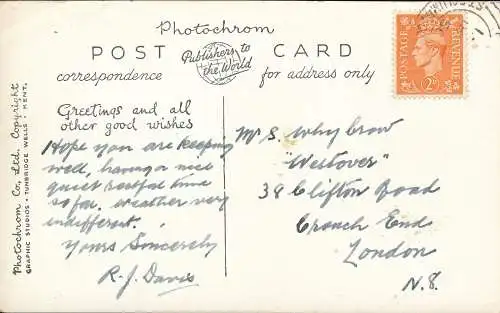 Photochrom
POST CARD
Publishers to
the World
correspondence
for address only
POSTAGE
REVENUE
2D
Photochrom Co. Ltd. Copyright
GRAPHIC STUDIOS • TUNBRIDGE WELLS • KENT.
Greetings and all
other good wishes
Hope you are keeping
well, having a nice
quiet restful time
so far. weather very
indifferent.
Yours Sincerely
R. J. Davis
Mrs S. Whybrow
"Westover"
38 Clifton Road
Crouch End
London
N.8.